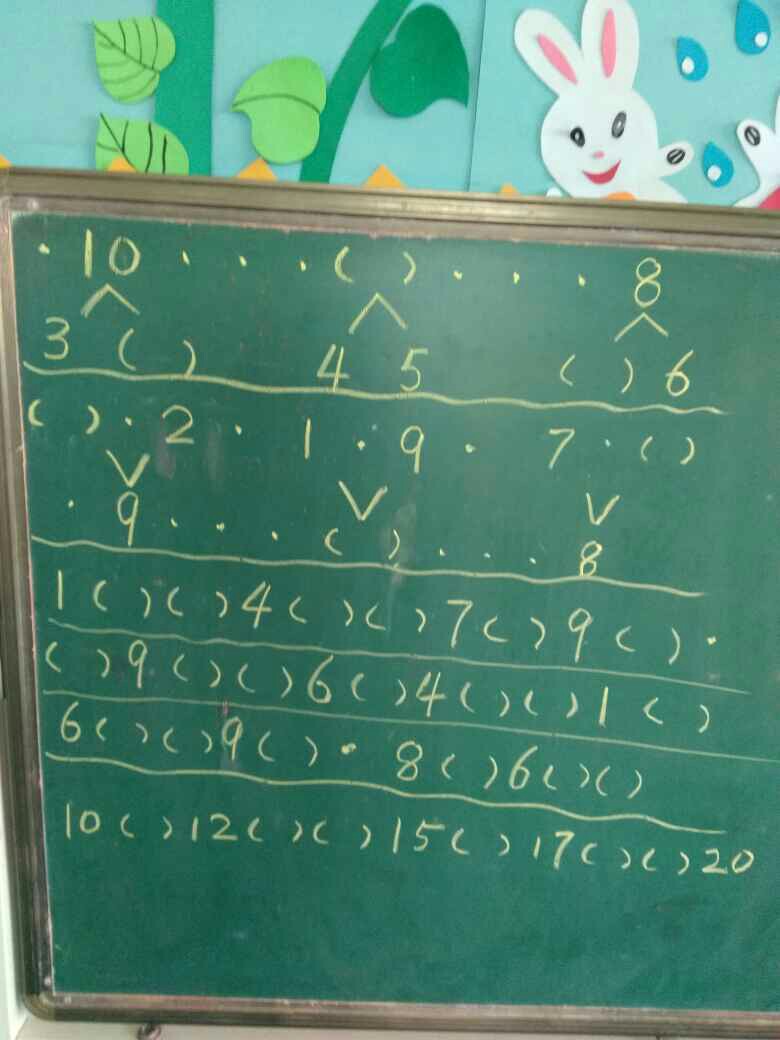 · 10 · · · ( ) · · · 8
3 ( ) 4 5 ( ) 6
( ) · 2 · 1 · 9 · 7 · ( )
· 9 · · · ( ) · · · 8
1 ( ) ( ) 4 ( ) ( ) 7 ( ) 9 ( ) ·
( ) 9 ( ) ( ) 6 ( ) 4 ( ) ( ) 1 ( )
6 ( ) ( ) 9 ( ) · 8 ( ) 6 ( ) ( )
10 ( ) 12 ( ) ( ) 15 ( ) 17 ( ) ( ) 20